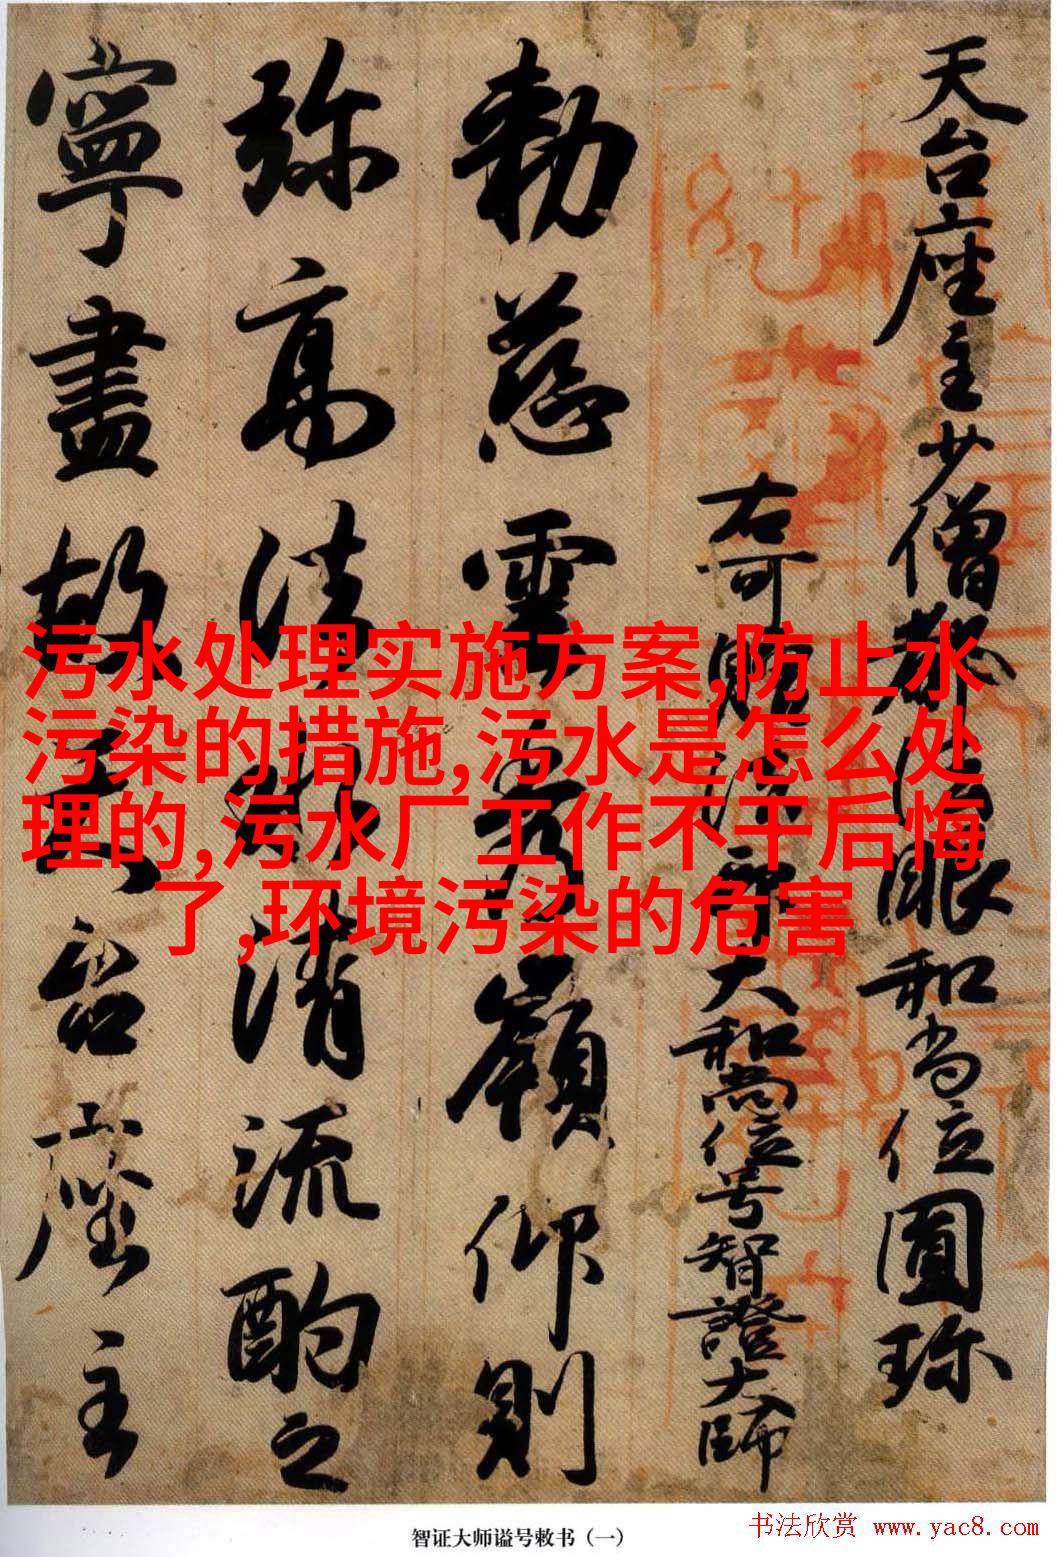 天台座主少僧都法眼和尚位圓珍
右可贈法印大和尚位号智證大師
勅慈雲秀嶺仰則
弥高法水清流酌之
寧盡故天台座主
污水处理实施方案,防止水
污染的措施,污水是怎么处
理的,污水厂工作不干后悔
了,环境污染的危害
智证大师谥号敕书（一）
书法欣赏 www.yac8.com